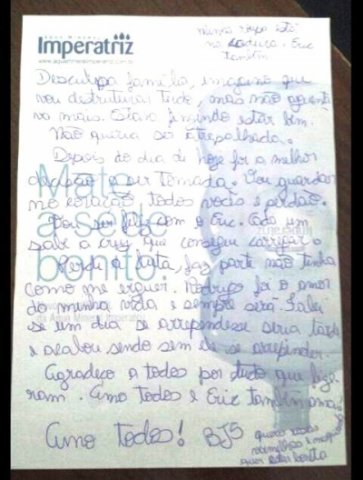 ÁGUA MINERAL
Imperatriz
www.aguamineralimperatriz.com.br
minha roupa está
no Eric
também
Desculpa família, imagino que
vou destruturar tudo mas não aguento
mais. Estava fingindo estar bem.
Não queria ser atrapalhada.
Depois do dia de hoje foi a melhor
decisão a ser tomada. Vou guardar
no coração todos vocês e perdão.
Vou ser feliz com o Eric. Cada um
sabe a cruz que consegue carregar.
Perdi a luta, faz parte não tenho
como me erguer. Rodrigo foi o amor
da minha vida e sempre será. Falei
se um dia se arrependesse seria tarde
e acabou sendo sem ele se arrepender.
Agradeço a todos por tudo que fize
ram. Amo todos e Eric também ama
Amo todos! BJS
quero rosas
vermelhas e
quero estar bonita
Mate
a sede
bonito.